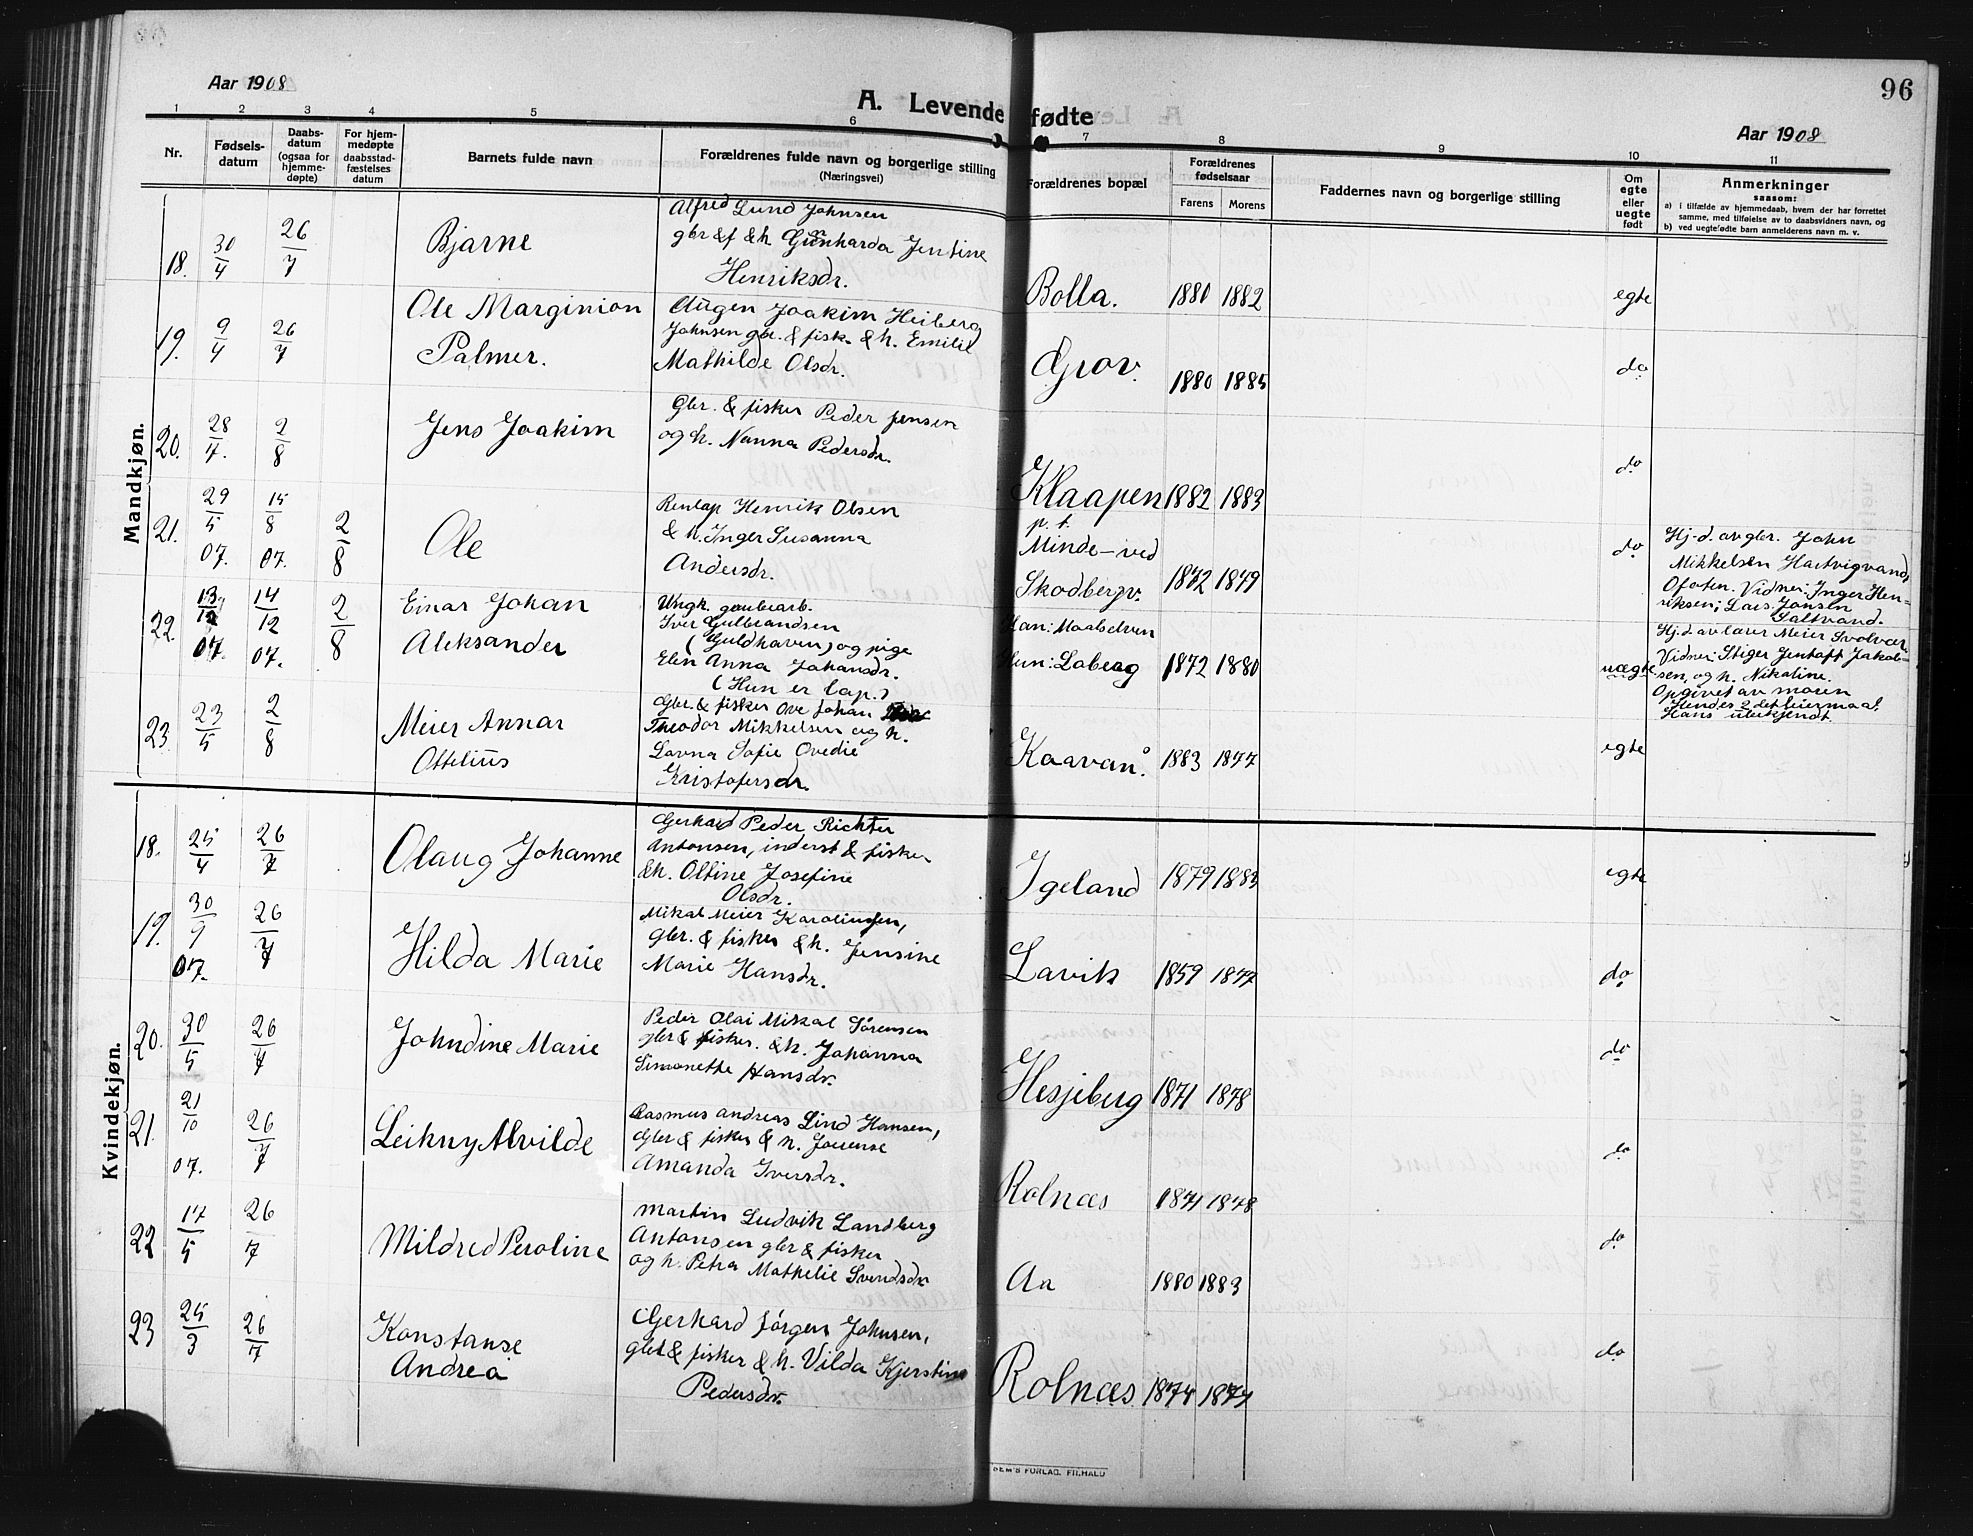 96
Aar 1908
A. Levende fødte
Aar 1908
1 2 3 4 5 6 7 8 9 10 11
Nr.
Fødsels-
datum
Daabs-
datum
(ogsaa for
hjemme-
døpte)
For hjem-
medøpte
daabsstad-
fæstelses
datum
Barnets fulde navn
Forældrenes fulde navn og borgerlige stilling
(Næringsvei)
Forældrenes bopæl
Forældrenes
fødselsaar
Farens Morens
Faddernes navn og borgerlige stilling
Om
egte
eller
uegte
født
Anmerkninger
saasom:
a) i tilfælde av hjemmedaab, hvem der har forrettet
samme, med tilføielse av to daabsvidners navn, og
b) ved uegtefødte barn anmelderens navn m. v.
Mandkjøn.
18. 30/4 26/7 Bjarne
Alfred Lund Johnsen
gbr & f & h. Gunharda Jentine
Henriksdr.
Bolla. 1880 1882 egte
19. 9/4 26/7 Ole Marginion
Palmer.
Augen Joakim Heiberg
Johnsen gbr. & fisk. & h. Emilie
Mathilde Olsdr.
Grov. 1880 1885 do
20. 28/7. 2/8 Jens Joakim
Gbr. & fisker Peder Jensen
og h. Nanna Pedersdr.
Klaapen 1882 1883 do
21. 29/5 07. 15/8 07. 2/8 Ole
Renlap Henrik Olsen
& h. Inger Susanna
Andersdr.
p. t.
Minde - ved
Skodbergv. 1872 1879 do
Hj. d. av gbr. John
Mikkelsen Hartvigvand,
Ofoten. Vidner: Inger Hen-
riksen; Lars Jonsen
Saltvand.
22. 13/12 07. 14/12 07. 2/8 Einar Johan
Aleksander
Ungk. grubearb.
Iver Gulbrandsen
(Guldhaven) og pige
Elen Anna Johansdr.
(Hun er lap.)
Han: Maalselven
Hun: Laberg 1872 1880 uægte
Hj. d. av lærer Meier Svolvær.
Vidner: Stiger Jentoft Jakob-
sen, og h. Nikoline.
Opgivet av moren
Hendes 2det leiermaal.
Hans ubekjendt.
23. 23/5 2/8 Meier Annar
Ottelius
Gbr. & fisker Ove Johan
Theodor Mikkelsen og h.
Lovna Sofie Ovedie
Kristofersdr.
Kaavan. 1883 1877 egte
Kvindekjøn.
18. 25/4 26/7 Olaug Johanne
Gerhard Peder Richter
Antonsen, inderst & fisker
& h. Oltine Josefine
Olsdr.
Igeland 1879 1883 egte
19. 30/9 07. 26/7 Hilda Marie
Mikal Meier Karoliussen,
gbr. & fisker & h. Jensine
Marie Hansdr.
Lavik 1859 1877 do
20. 30/5 26/7 Johndine Marie
Peder Olai Mikal Sørensen
gbr & fisker. & h. Johanna
Simonette Hansdr.
Hesjeberg 1871 1878 do
21. 21/10 07. 26/7 Leikny Alvilde
Rasmus Andreas Lind Hansen,
Gbr & fisker & h. Jorense
Amanda Iversdr.
Rolnæs 1871 1878 do
22 17/5 26/7 Mildred Peroline
Martin Ludvik Landberg
Antonsen gbr & fisker
og h. Petra Mathelie Svendsdr
Aa 1880 1883 do
23 25/3 26/7 Konstanse
Andrea
Gerhard Jørgen Johnsen,
gbr & fisker & h. Vilda Kjerstine
Pedersdr.
Rolnæs. 1874 1877 do
SEM'S FORLAG, FR.HALD